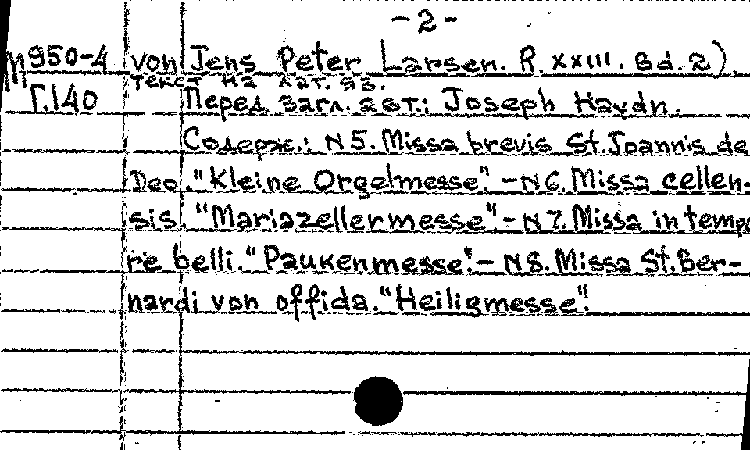 - 2 -
М950-4 von Jens Peter Larsen. R. XXIII. Bd. 2)
Текст на лат. яз.
Г.140 Перед загл. авт.: Joseph Haydn.
Содерж.: N 5. Missa brevis St. Joannis de
Deo. "Kleine Orgelmesse". - N 6. Missa cellen-
sis. "Mariazellermesse". - N 7. Missa in tempo
re belli. "Paukenmesse". - N 8. Missa St. Ber-
nardi von offida. "Heiligmesse".